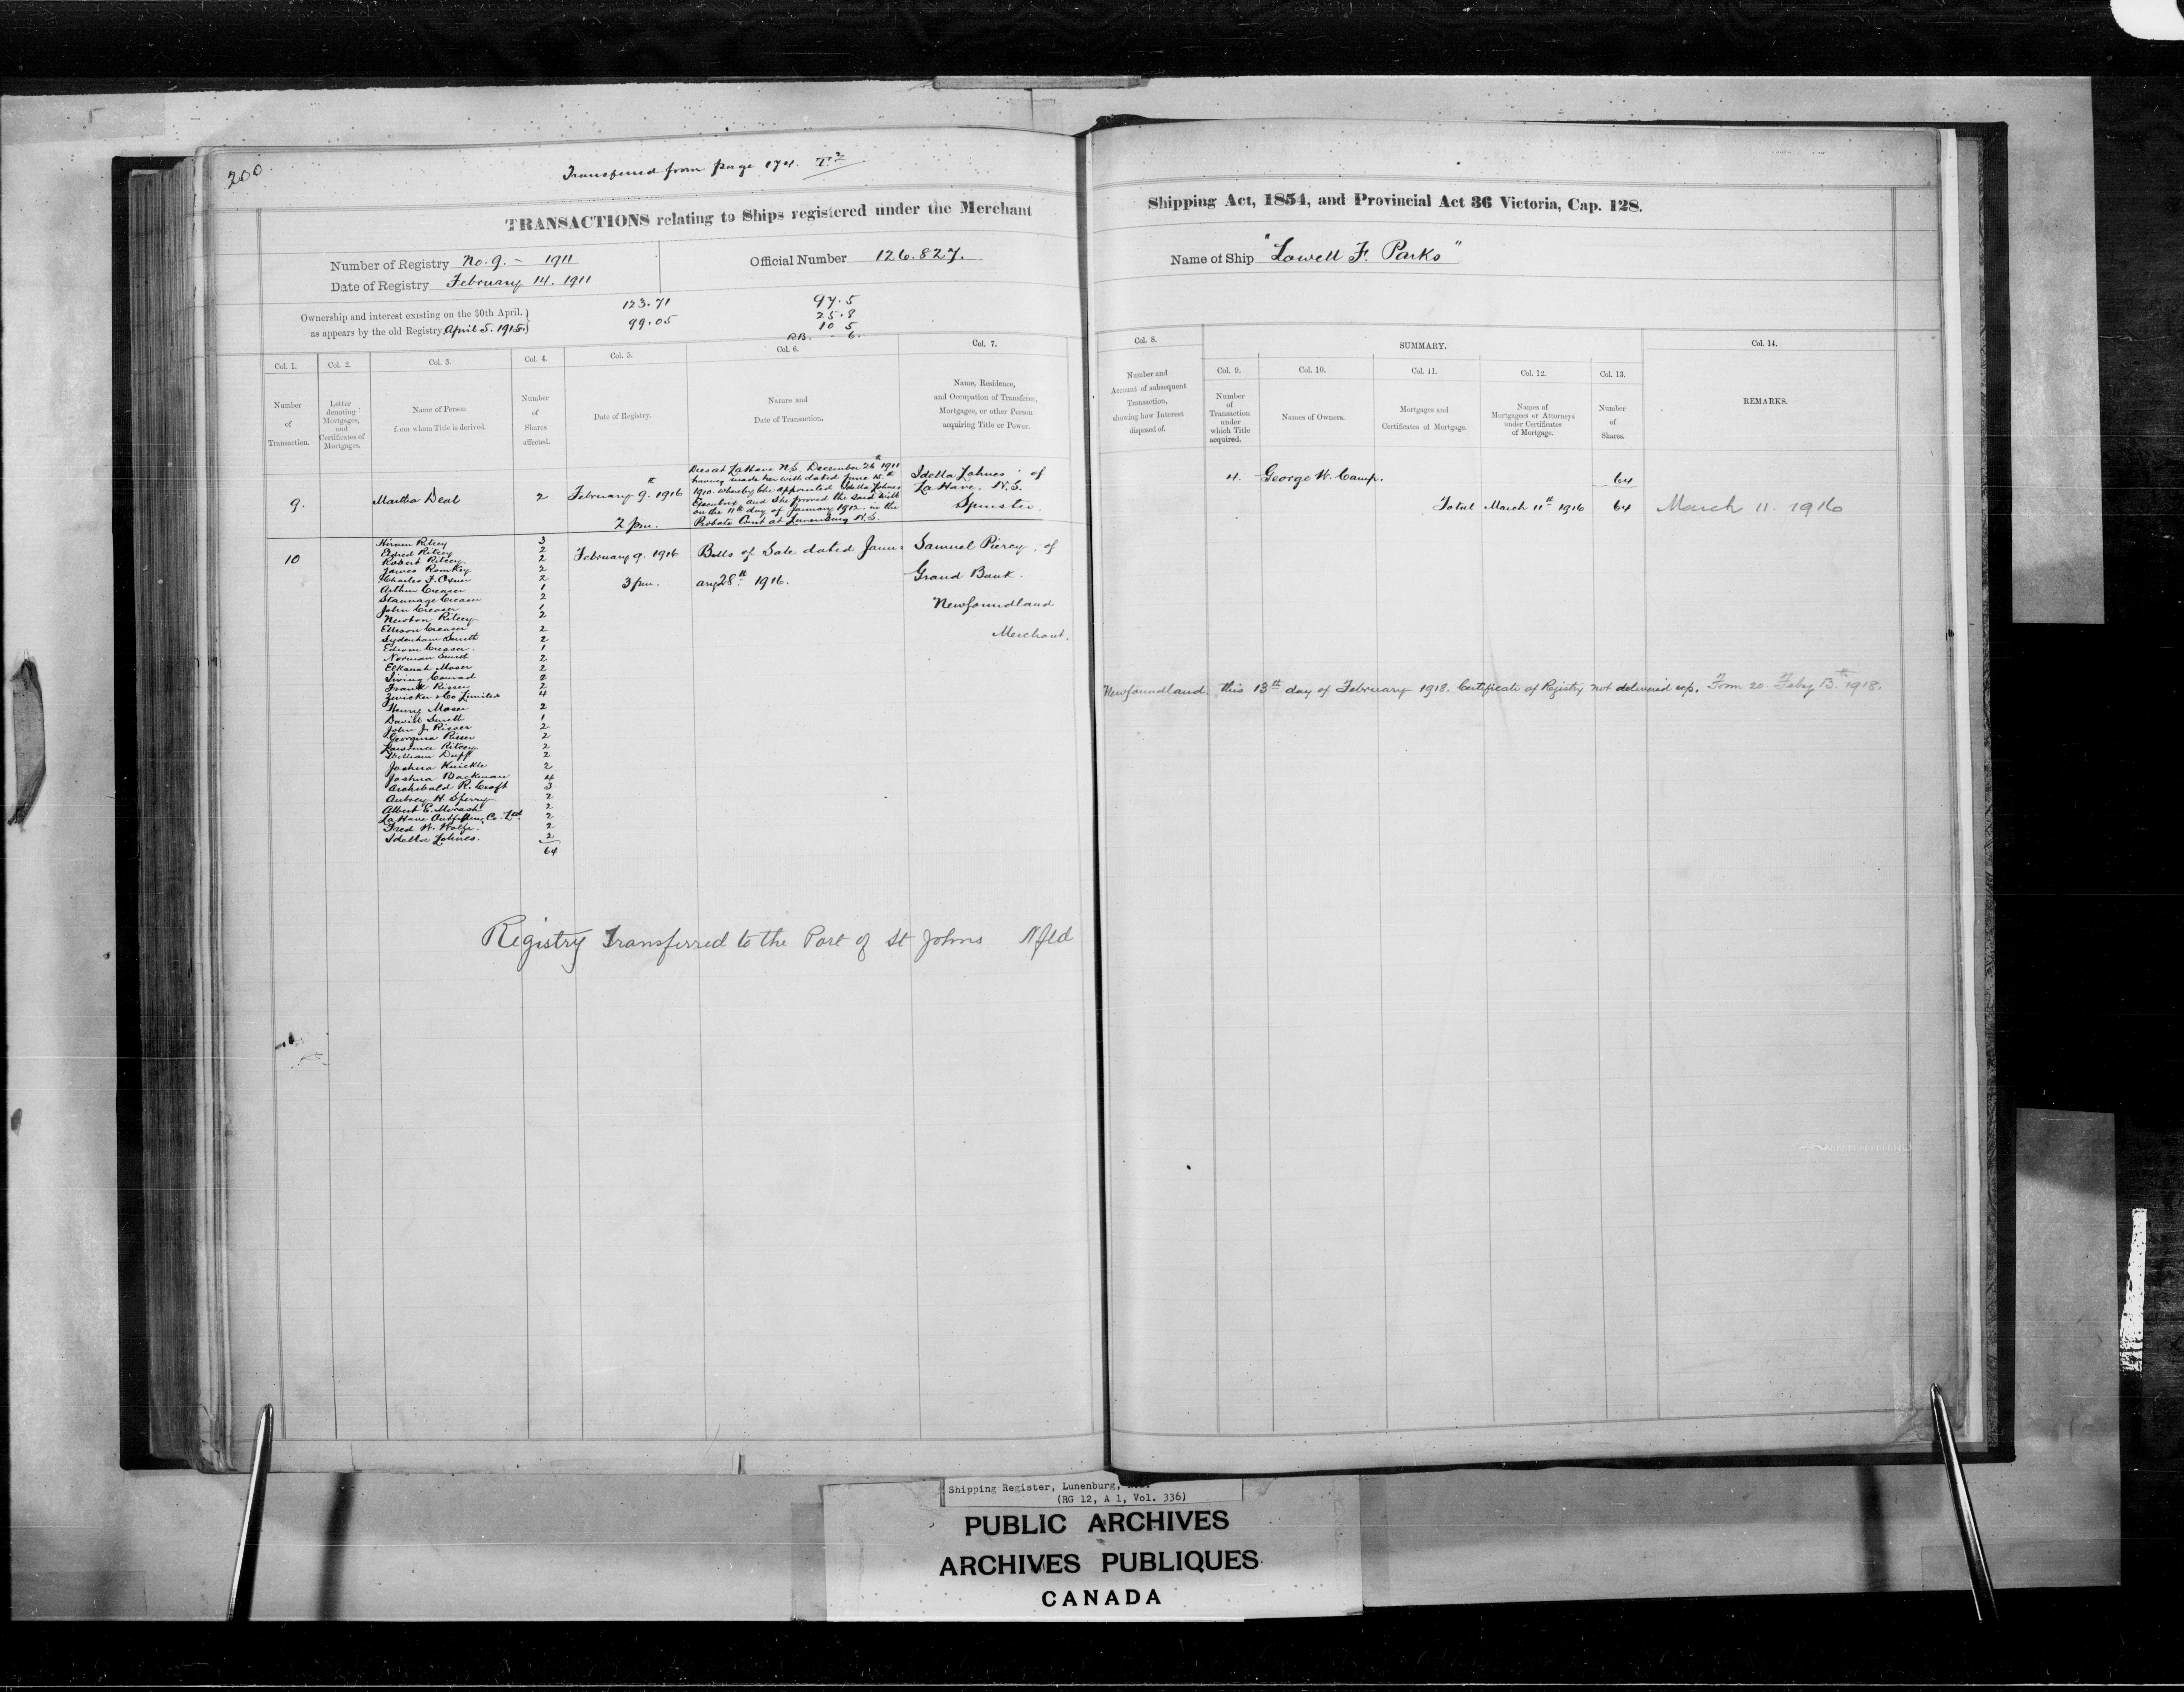 200
Transferred from page 174. T2
TRANSACTIONS relating to Ships registered under the Merchant
Number of Registry No. 9. - 1911
Official Number 126.827.
Date of Registry February 14. 1911
Ownership and interest existing on the 30th April,
as appears by the old Registry. April 5. 1915.
123.71
99.05
97.5
25.8
10 5
6.
Col. 1.
Col. 2.
Col. 3.
Col. 4.
Col. 5.
Col. 6.
Col. 7.
Number of Transaction.
Letter denoting Mortgages, and Certificates of Mortgages.
Name of Person from whom Title is derived.
Number of Shares affected.
Date of Registry.
Nature and Date of Transaction.
Name, Residence, and Occupation of Transferee, Mortgagee, or other Person acquiring Title or Power.
9.
Martha Deal
2
February 9th 1916
2 pm.
Dies at LaHave N.S. December 26th 1911
having made her will dated June 15th
1910. whereby she appointed Idella Zohnes
Executrix and she proved the said will
on the 11th day of January 1912. in the
Probate Court at Lunenburg N.S.
Idella Zohnes of
LaHave. N.S.
Spinster.
10
February 9. 1916
3 pm.
Bills of Sale dated Janu-
ary 28th 1916.
Samuel Piercy, of
Grand Bank.
Newfoundland
Merchant.
Hiram Ritcey 3
Elfred Ritcey 2
Robert Ritcey 2
James Romkey 2
Charles F. Oxner 2
Arthur Creaser 1
Stannage Creaser 2
John Creaser 1
Newton Ritcey 2
Ellison Creaser 2
Sydenham Smith 2
Edwin Creaser. 1
Norman Smith 2
Elkanah Moser 2
Irving Conrad 2
Frank Risser 2
Zwicker & Co Limited 4
Henry Moser 2
David Smith 1
John J. Risser 2
Georgina Risser 2
Lawrence Ritcey 2
William Duff 2
Joshua Knickle 2
Joshua Backman 4
Archibald R. Croft 3
Aubrey H. Sperry 2
Albert E. Morash 2
La Have Outfitting Co. Ltd. 2
Fred W. Wolfe. 2
Idella Zohnes. 2
64
Registry Transferred to the Port of St Johns Nfld
Shipping Act, 1854, and Provincial Act 36 Victoria, Cap. 128.
Name of Ship "Lowell F. Parks"
Col. 8.
SUMMARY.
Col. 14.
Col. 9.
Col. 10.
Col. 11.
Col. 12.
Col. 13.
Number and Account of subsequent Transaction, showing how Interest disposed of.
Number of Transaction under which Title acquired.
Names of Owners.
Mortgages and Certificates of Mortgage.
Names of Mortgagees or Attorneys under Certificates of Mortgage.
Number of Shares.
REMARKS.
11. George W. Camp. 64
Total March 11th 1916 64 March 11. 1916
Newfoundland. this 13th day of February 1918. Certificate of Registry not delivered up. Form 20 Feby 13th 1918.
Shipping Register, Lunenburg,
(RG 12, A 1, Vol. 336)
PUBLIC ARCHIVES
ARCHIVES PUBLIQUES
CANADA